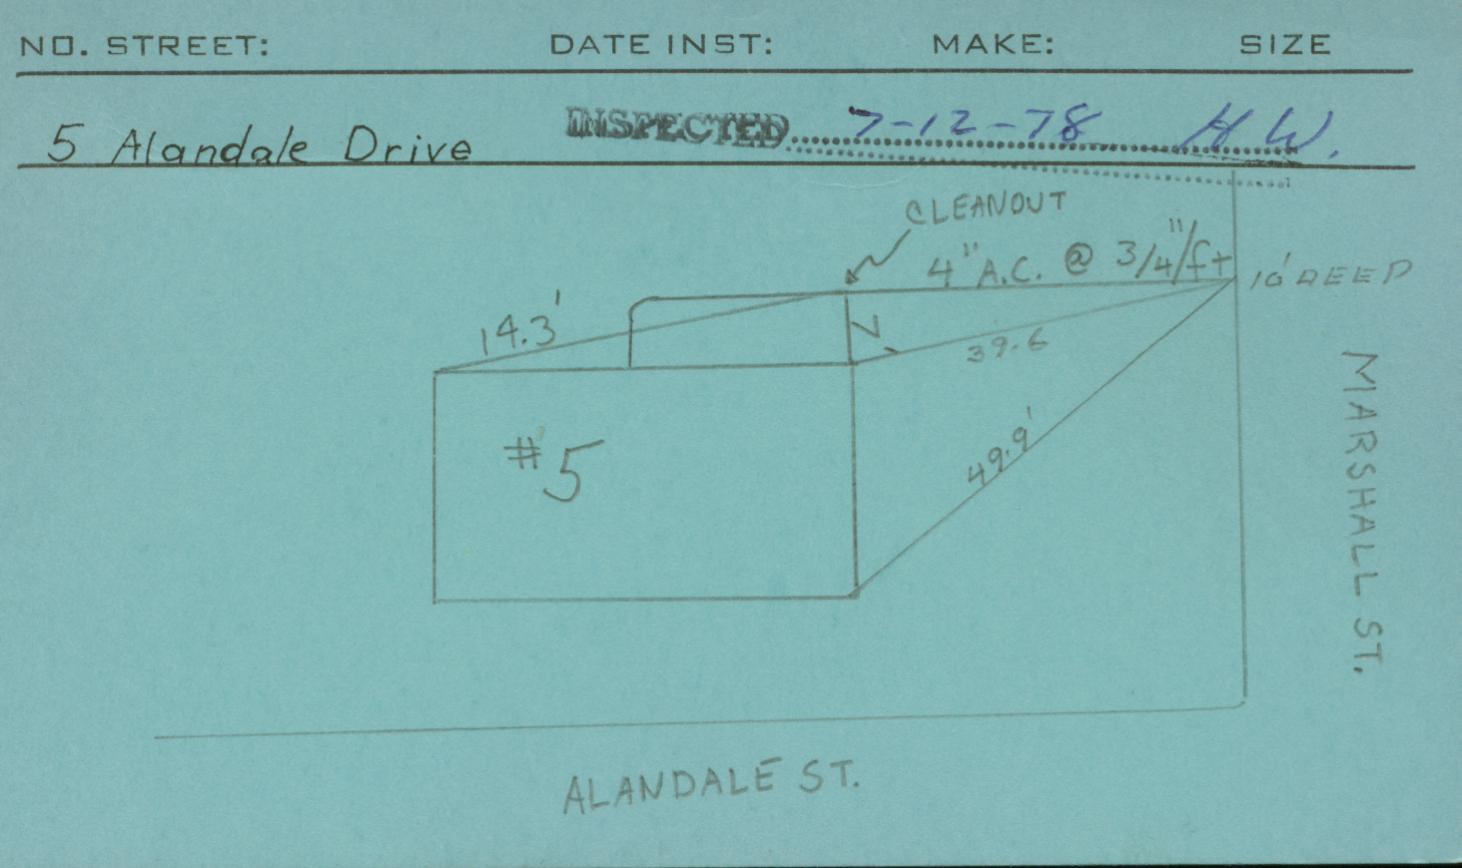 NO. STREET: DATE INST: MAKE: SIZE
5 Alandale Drive INSPECTED 7-12-78 H.W.
CLEANOUT
4" A.C. @ 3/4"/ft
10' DEEP
14.3'
39.6
#5
49.9'
MARSHALL ST.
ALANDALE ST.